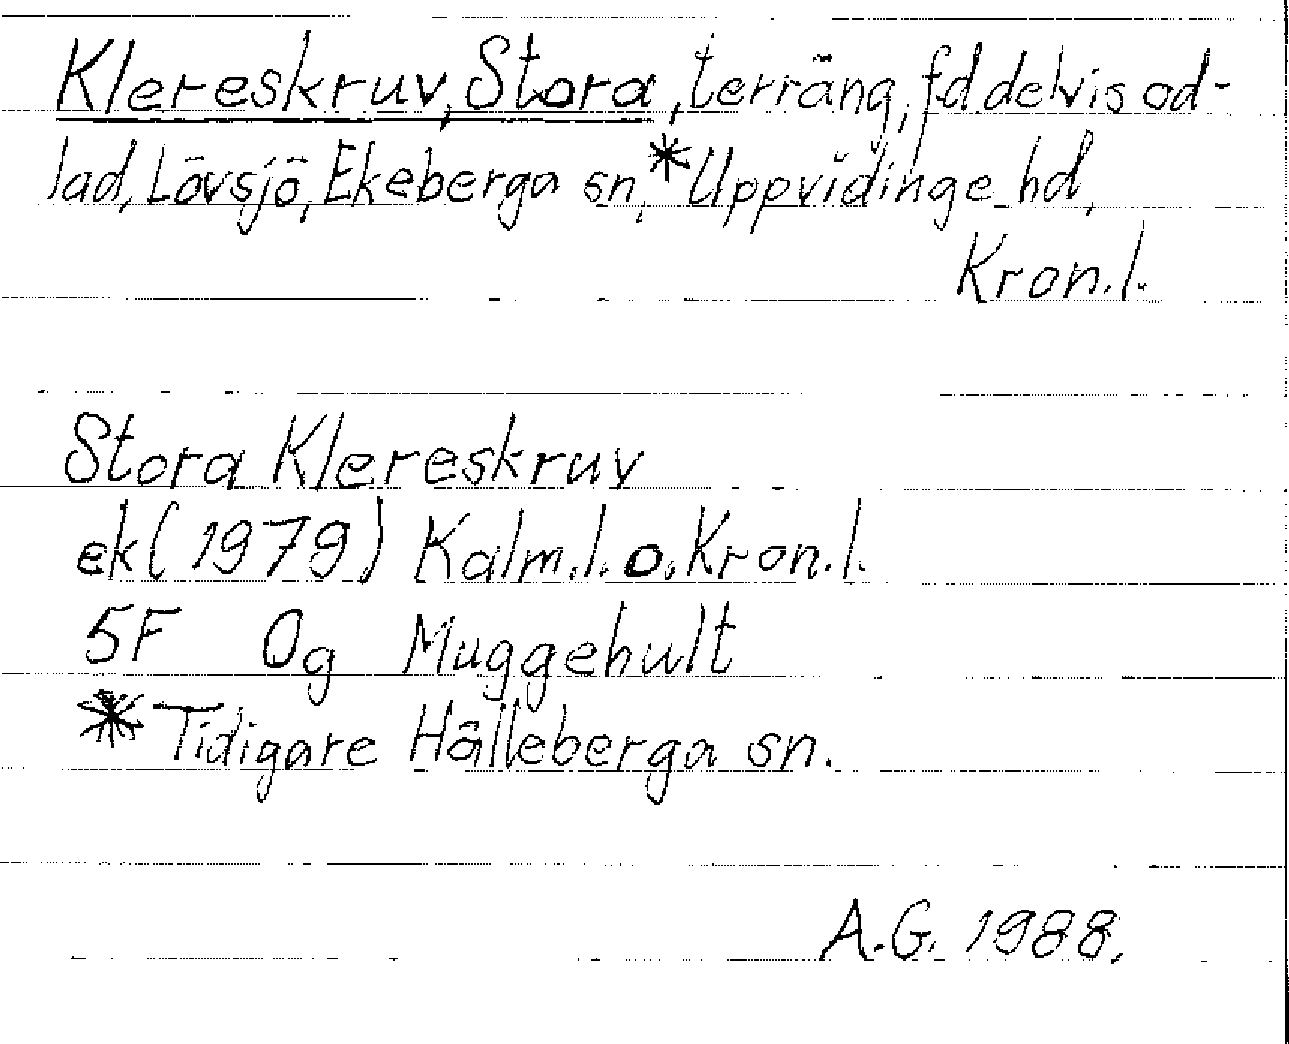 Klereskruv, Stora, terräng, fd delvis od-
lad, Lövsjö, Ekeberga sn,* Uppvidinge hd,
Kron.l.
Stora Klereskruv
ek (1979) Kalm.l. o. Kron.l.
5F Og Muggehult
* Tidigare Hälleberga sn.
A.G. 1988.